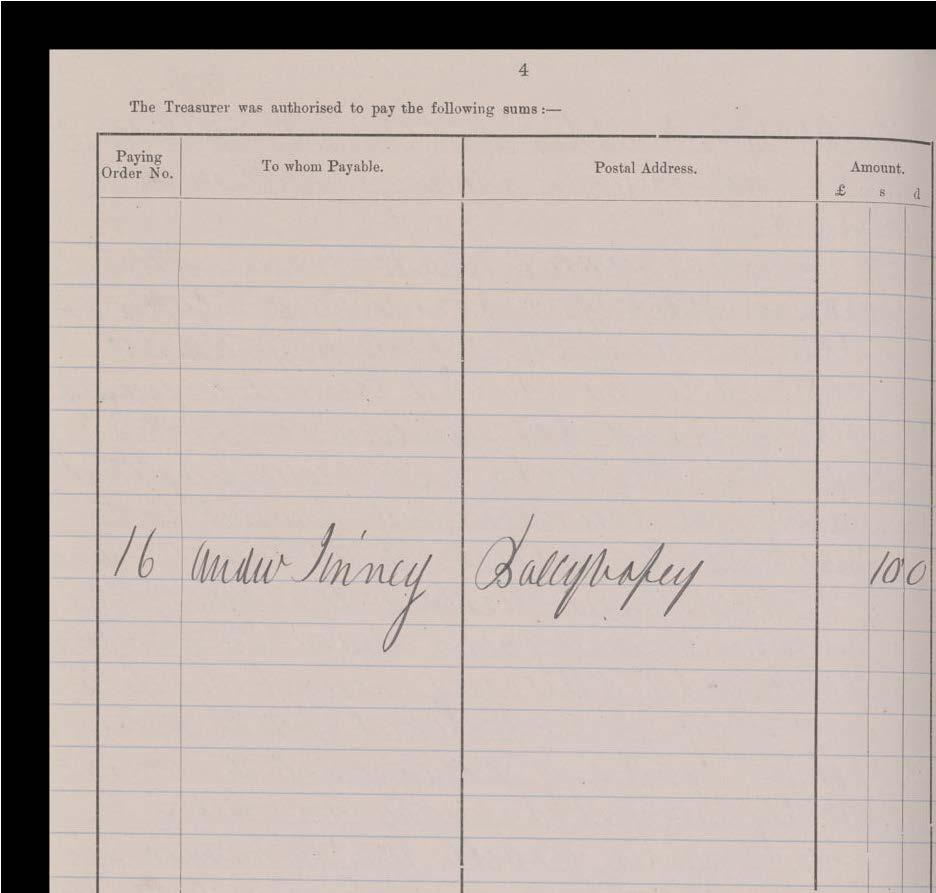 4
The Treasurer was authorised to pay the following sums :—
Paying Order No. To whom Payable. Postal Address. Amount.
£ s d
16 Andw Tinney Ballyhofey 10 0